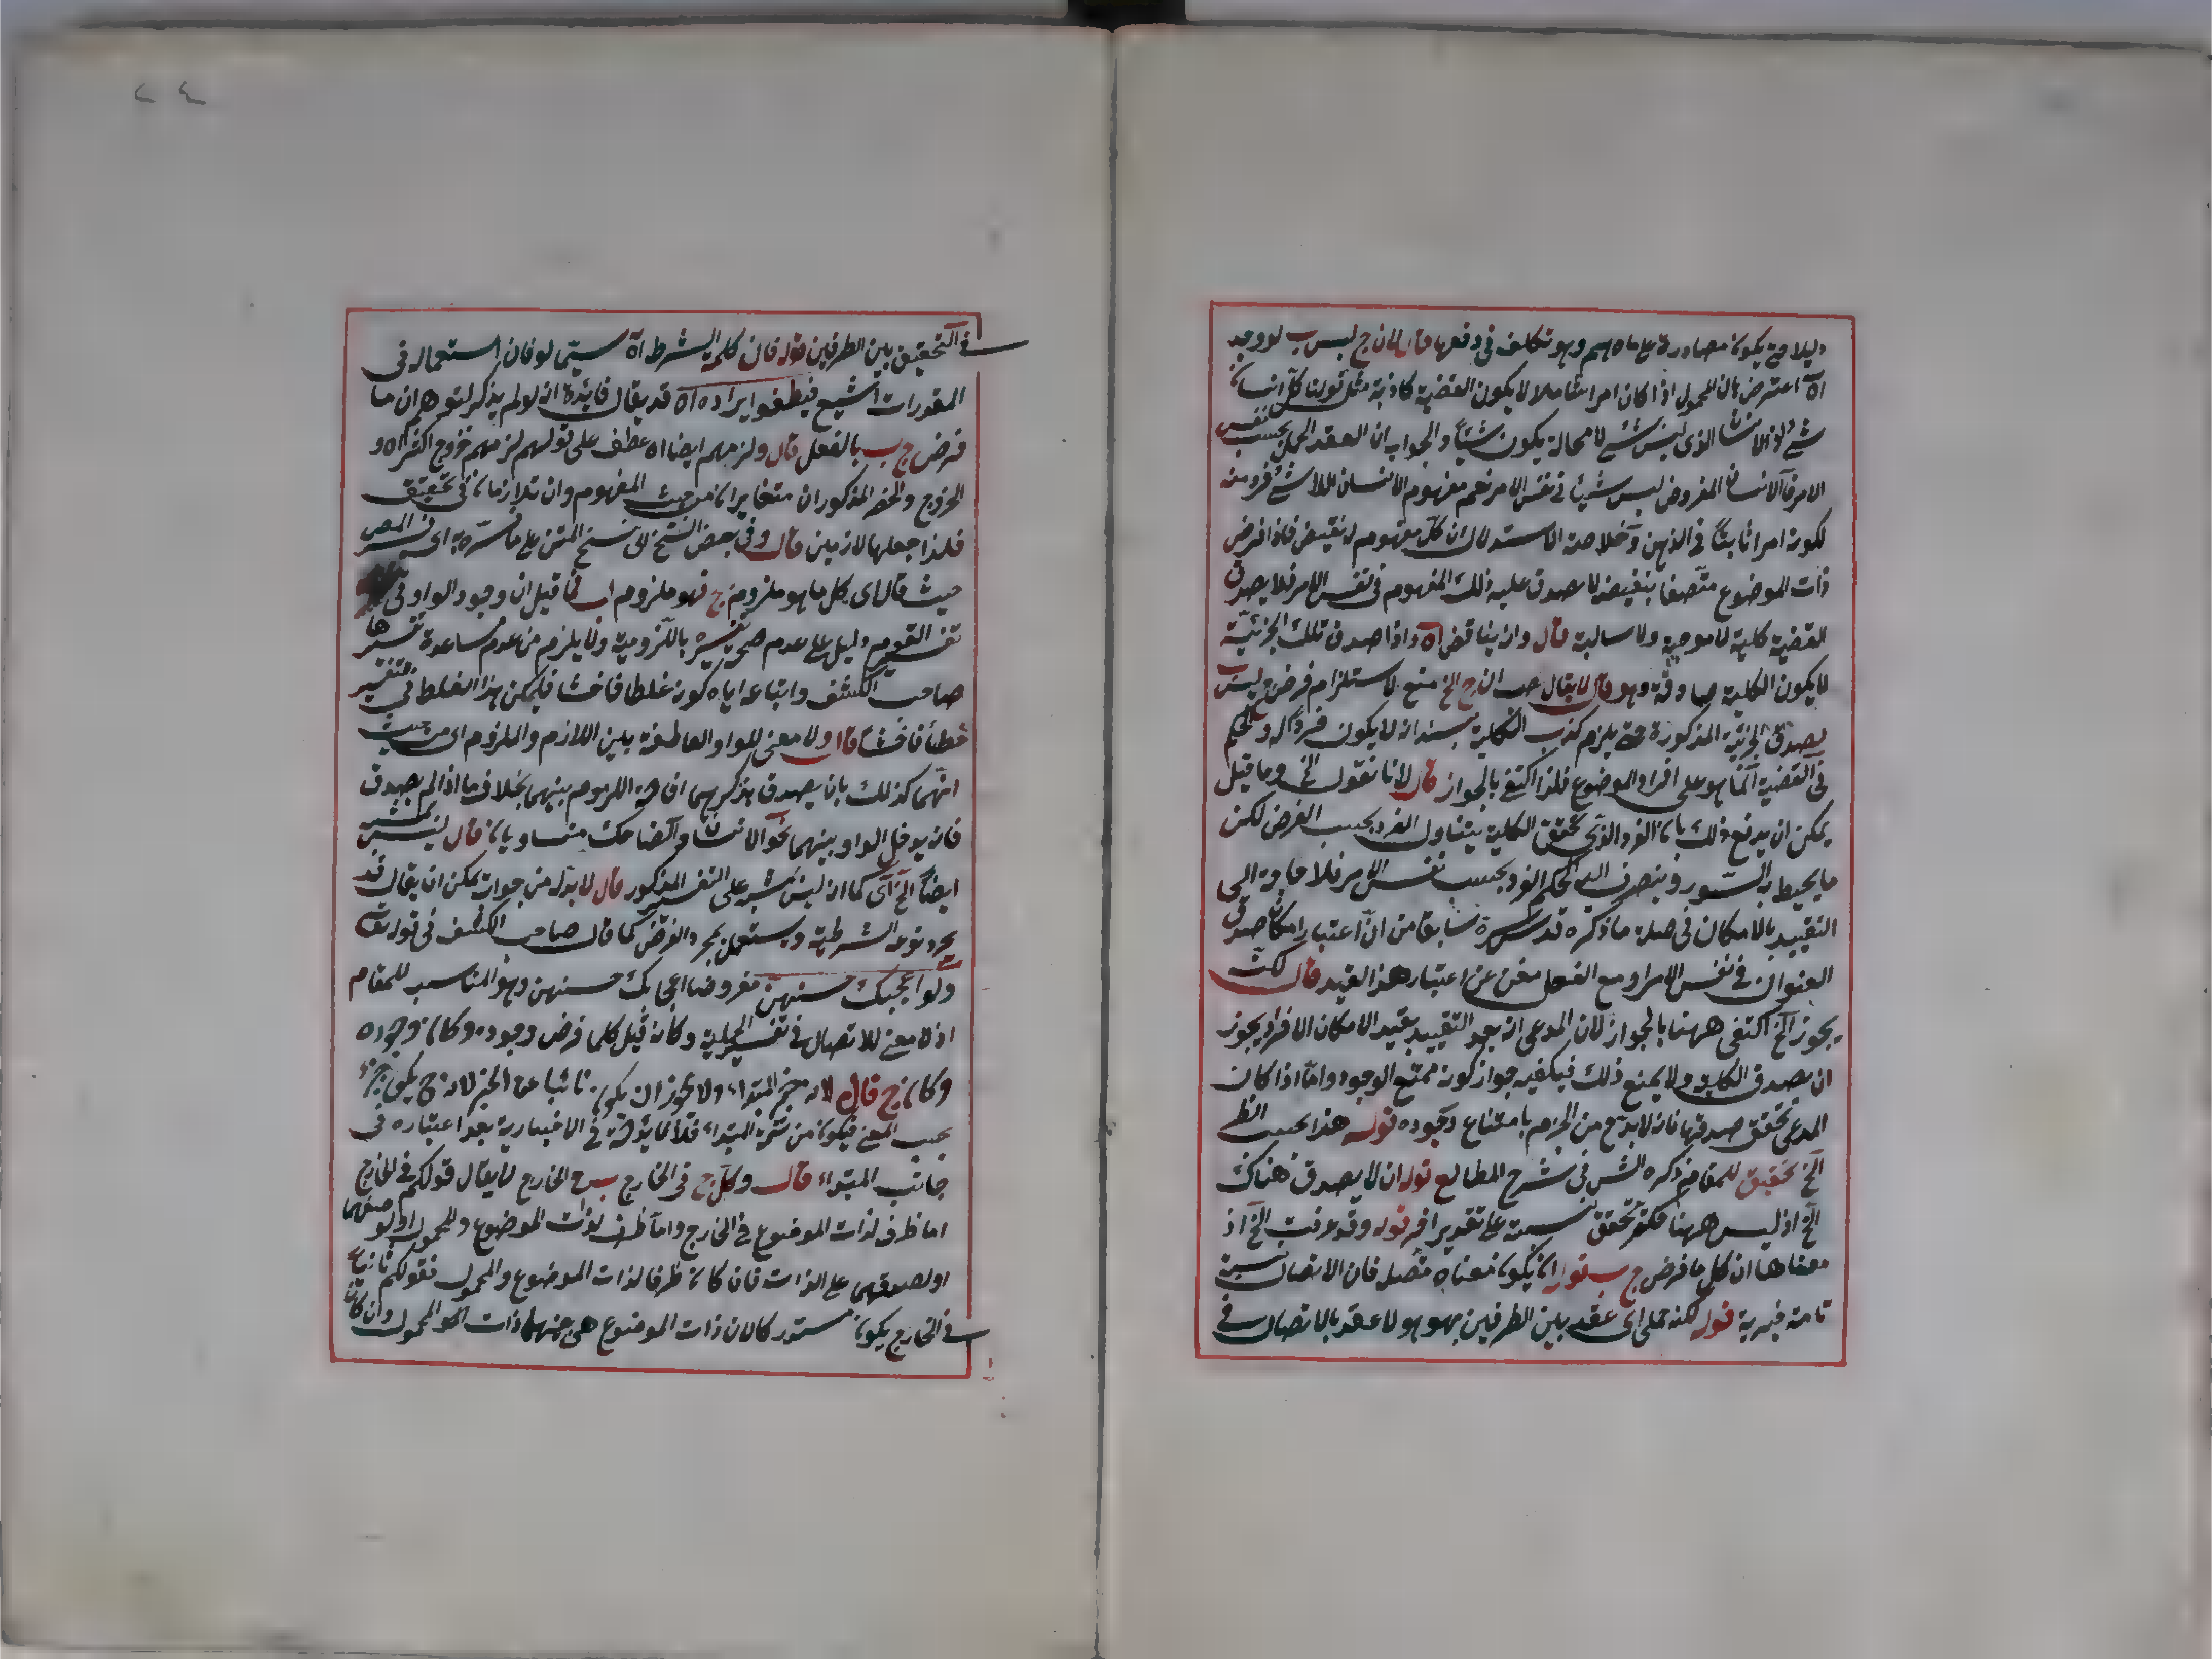 دليلا فح يكون مصادرة على ما هم وهو تكلف في دفعها قال لان ج ليس ب لو وجد
اه اعترض بان المحمول اذا كان امرا شاملا لا يكون القضية كاذبة مثل قولنا كل انسان
شئ اذ الانسان الذي ليس بشئ لا محالة يكون شيئا والجواب ان العقد الحملي بحسب نفس
الامر فالانسان المفروض ليس شيئا في نفس الامر نعم مفهوم الانسان اللاشئ فرد منه
لكونه امرا ثابتا في الذهن وخلاصة الاستدلال ان كل مفهوم له نقيض فاذا فرض
ذات الموضوع متصفا بنقيضه لا يصدق عليه ذلك المفهوم في نفس الامر فلا يصدق
القضية كلية لا موجبة ولا سالبة قال وانه يناقض اه واذا صدق تلك الجزئية
لا يكون الكلية صادقة وهو قال لا يقال هب ان ج الخ منع لاستلزام فرض ج ليس ب
بصدق الجزئية المذكورة حتى يلزم كذب الكلية بسند انه لا يكون فردا له والحكم
في القضية انما هو على افراد الموضوع فلذا اكتفى بالجواز قال لانا نقول الخ وما قيل
يمكن ان يدفع ذلك بان الفرد الذي تحقق الكلية يتناول الفرد بحسب الفرض لكن
ما يحيط به السور وينصرف اليه الحكم الفرد بحسب نفس الامر فلا حاجة الى
التقييد بالامكان في صلة ما ذكره قدس سره سابقا من ان اعتبار امكان صدق
العنوان في نفس الامر او مع الفعل مغن عن اعتبار هذا القيد قال لكنه
يجوز الخ اكتفى ههنا بالجواز لان المدعى انه بعد التقييد بقيد الامكان الافراد يجوز
ان يصدق الكلية ولا يمنع ذلك فيكفيه جواز كونه ممتنع الوجود واما اذا كان
المدعى تحقق صدقها فانه لا بد ح من الجزم بامتناع وجوده قوله هذا بحسب الظ
الخ تحقيق للمقام ذكره الش في شرح المطالع قوله ان لا يصدق هناك
الخ اذ ليس ههنا تحقق نسبة على تقدير اخر قوله وقد عرفت الخ اذ
معناها ان كل ما فرض ج ب قوله ان يكون معناه متصل فان الاتصال نسبة
تامة خبرية قوله لكنه حملي اى عقد بين الطرفين بهو هو لا عقد بالاتصال في
٢٤
في التحقيق بين الطرفين قوله فان كلمة الشرط اه سيما لو فان استعماله في
المقدرات اشيع فينطفوا ايراده اه قد يقال فائدة انه لو لم يذكر لتوهم ان ما
فرض ج ب بالفعل قال ولزمهم ايضا اه عطف على قولهم لزمهم خروج اكثر اه و
الخروج والحصر المذكوران متغايران من حيث المفهوم وان تلازما في تحقيق
فلذا جعلها لازمين قال وفي بعض النسخ اى نسخ المتن على ما فسره به اى فسر المص
حيث قال اى كل ما هو ملزوم ج فهو ملزوم ب فما قيل ان وجود الواو في
تفسير القوم دليل على عدم صحة تفسيره باللزومية ولا يلزم من عدم مساعدة تفسيرها
صاحب الكشف واتباعه اياه كونه غلطا فاحشا فليكن هذا الغلط في التفسير
خطأ فاحشا قال ولا معنى للواو العاطفة بين اللازم والملزوم اى من حيث
انهما كذلك بان يصدق بذكرهما افادة اللزوم بينهما بخلاف ما اذا لم يصدق
فانه يدخل الواو بينهما نحو الانسان والضاحك متساويان قال ليس بمستقيم
ايضا الخ اى كما انه ليس بمستقيم على التفسير المذكور قال لا بد له من جواب يمكن ان يقال قد
يجرد لو عن الشرطية ويستعمل لمجرد الفرض كما قال صاحب الكشف في قوله تعالى
ولو اعجبك حسنهن مفروضا اعجابك حسنهن وهو المناسب للمقام
اذ لا معنى للاتصال في تفسير الحملية وكانه قيل كلما فرض وجوده وكان وجوده
وكان ج قال لانه خبر المبتداء ولا يجوز ان يكون نائبا عن الخبر لانه ح يكون جزء
بحسب المعنى فيكون من تتمة المبتداء فلا فائدة في الاخبار به بعد اعتباره في
جانب المبتداء قال وكل ج في الخارج ب في الخارج لا يقال قولكم في الخارج
اما ظرف لذات الموضوع في الخارج واما ظرف لذات الموضوع والمحمول او لوصفهما
او لصدقهما على الذات فان كان ظرفا لذات الموضوع والمحمول فقولكم ثانيا
في الخارج يكون مستدركا لان ذات الموضوع هي بعينها ذات المحمول وان كان